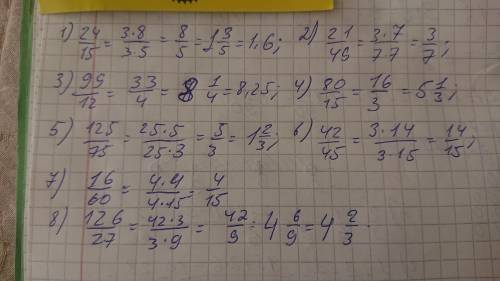 1) 24/15 = 3·8/3·5 = 8/5 = 1 3/5 = 1,6; 2) 21/49 = 3·7/7·7 = 3/7;
3) 99/12 = 33/4 = 8 1/4 = 8,25; 4) 80/15 = 16/3 = 5 1/3;
5) 125/75 = 25·5/25·3 = 5/3 = 1 2/3; 6) 42/45 = 3·14/3·15 = 14/15;
7) 16/60 = 4·4/4·15 = 4/15
8) 126/27 = 42·3/3·9 = 42/9 = 4 6/9 = 4 2/3.